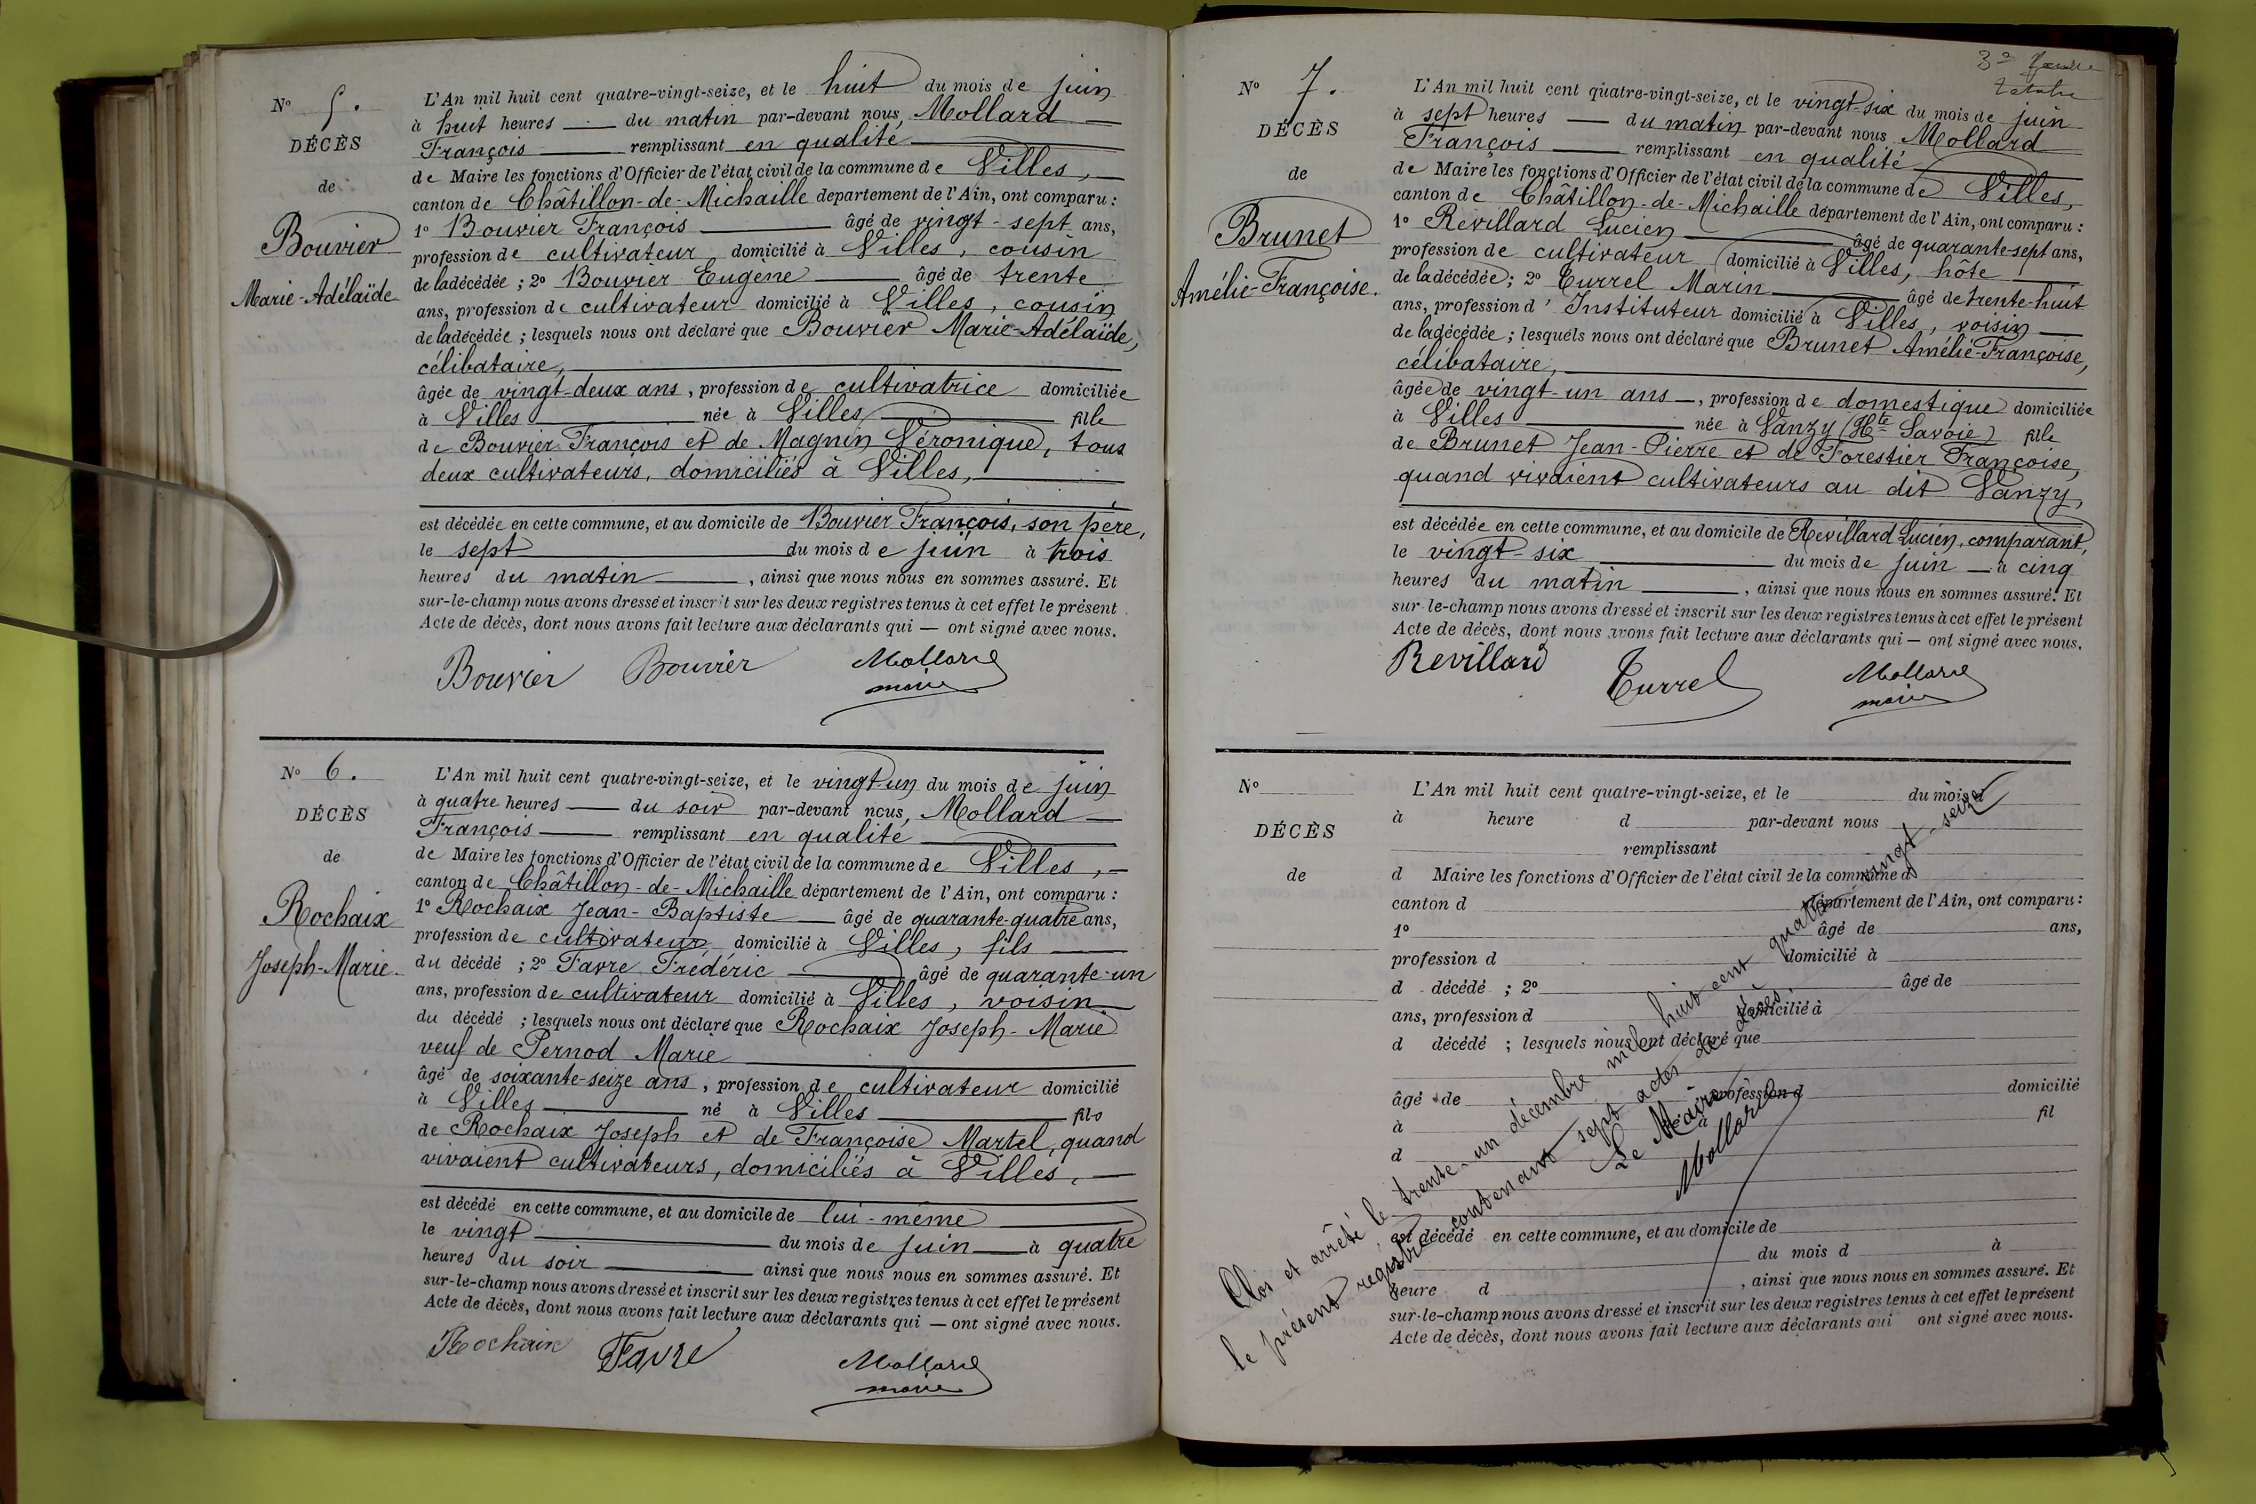 No 5.
DÉCÈS
de
Bouvier
Marie-Adélaïde
L'An mil huit cent quatre-vingt-seize, et le huit du mois de juin
à huit heures du matin par-devant nous, Mollard
François remplissant en qualité
de Maire les fonctions d'Officier de l'état civil de la commune de Villes,
canton de Châtillon-de-Michaille département de l'Ain, ont comparu :
1o Bouvier François âgé de vingt-sept ans,
profession de cultivateur domicilié à Villes, cousin
de la décédée ; 2o Bouvier Eugène âgé de trente
ans, profession de cultivateur domicilié à Villes, cousin
de la décédée ; lesquels nous ont déclaré que Bouvier Marie-Adélaïde,
célibataire,
âgée de vingt-deux ans, profession de cultivatrice domiciliée
à Villes née à Villes fille
de Bouvier François et de Magnin Véronique, tous
deux cultivateurs, domiciliés à Villes,
est décédée en cette commune, et au domicile de Bouvier François, son père,
le sept du mois de juin à trois
heures du matin, ainsi que nous nous en sommes assuré. Et
sur-le-champ nous avons dressé et inscrit sur les deux registres tenus à cet effet le présent
Acte de décès, dont nous avons fait lecture aux déclarants qui — ont signé avec nous.
Bouvier Bouvier Mollard
maire
No 6.
DÉCÈS
de
Rochaix
Joseph-Marie
L'An mil huit cent quatre-vingt-seize, et le vingt-un du mois de juin
à quatre heures du soir par-devant nous, Mollard
François remplissant en qualité
de Maire les fonctions d'Officier de l'état civil de la commune de Villes,
canton de Châtillon-de-Michaille département de l'Ain, ont comparu :
1o Rochaix Jean-Baptiste âgé de quarante-quatre ans,
profession de cultivateur domicilié à Villes, fils
du décédé ; 2o Favre Frédéric âgé de quarante-un
ans, profession de cultivateur domicilié à Villes, voisin
du décédé ; lesquels nous ont déclaré que Rochaix Joseph-Marie
veuf de Pernod Marie
âgé de soixante-seize ans, profession de cultivateur domicilié
à Villes né à Villes fils
de Rochaix Joseph et de Françoise Martel, quand
vivaient cultivateurs, domiciliés à Villes,
est décédé en cette commune, et au domicile de lui-même
le vingt du mois de juin à quatre
heures du soir ainsi que nous nous en sommes assuré. Et
sur-le-champ nous avons dressé et inscrit sur les deux registres tenus à cet effet le présent
Acte de décès, dont nous avons fait lecture aux déclarants qui — ont signé avec nous.
Rochaix Favre Mollard
maire
No 7.
DÉCÈS
de
Brunet
Amélie-Françoise.
L'An mil huit cent quatre-vingt-seize, et le vingt-six du mois de juin
à sept heures du matin par-devant nous Mollard
François remplissant en qualité
de Maire les fonctions d'Officier de l'état civil de la commune de Villes,
canton de Châtillon-de-Michaille département de l'Ain, ont comparu :
1o Revillard Lucien âgé de quarante-sept ans,
profession de cultivateur domicilié à Villes, hôte
de la décédée ; 2o Turrel Marin âgé de trente-huit
ans, profession d'Instituteur domicilié à Villes, voisin
de la décédée ; lesquels nous ont déclaré que Brunet Amélie-Françoise,
célibataire,
âgée de vingt-un ans, profession de domestique domiciliée
à Villes née à Vanzy (Hte Savoie) fille
de Brunet Jean-Pierre et de Forestier Françoise,
quand vivaient cultivateurs au dit Vanzy,
est décédée en cette commune, et au domicile de Revillard Lucien, comparant,
le vingt-six du mois de juin à cinq
heures du matin, ainsi que nous nous en sommes assuré. Et
sur-le-champ nous avons dressé et inscrit sur les deux registres tenus à cet effet le présent
Acte de décès, dont nous avons fait lecture aux déclarants qui — ont signé avec nous.
Revillard Turrel Mollard
maire
No
DÉCÈS
de
L'An mil huit cent quatre-vingt-seize, et le du mois d
à heure d par-devant nous
remplissant
d Maire les fonctions d'Officier de l'état civil de la commune d
canton d département de l'Ain, ont comparu :
1o âgé de ans,
profession d domicilié à
d décédé ; 2o âgé de
ans, profession d domicilié à
d décédé ; lesquels nous ont déclaré que
âgé de profession d domicilié
à né à fil
d
est décédé en cette commune, et au domicile de
du mois d à
heure d , ainsi que nous nous en sommes assuré. Et
sur-le-champ nous avons dressé et inscrit sur les deux registres tenus à cet effet le présent
Acte de décès, dont nous avons fait lecture aux déclarants qui ont signé avec nous.
Clos et arrêté le trente-un décembre mil huit cent quatre-vingt-seize
le présent registre contenant sept actes de décès.
Le Maire
Mollard